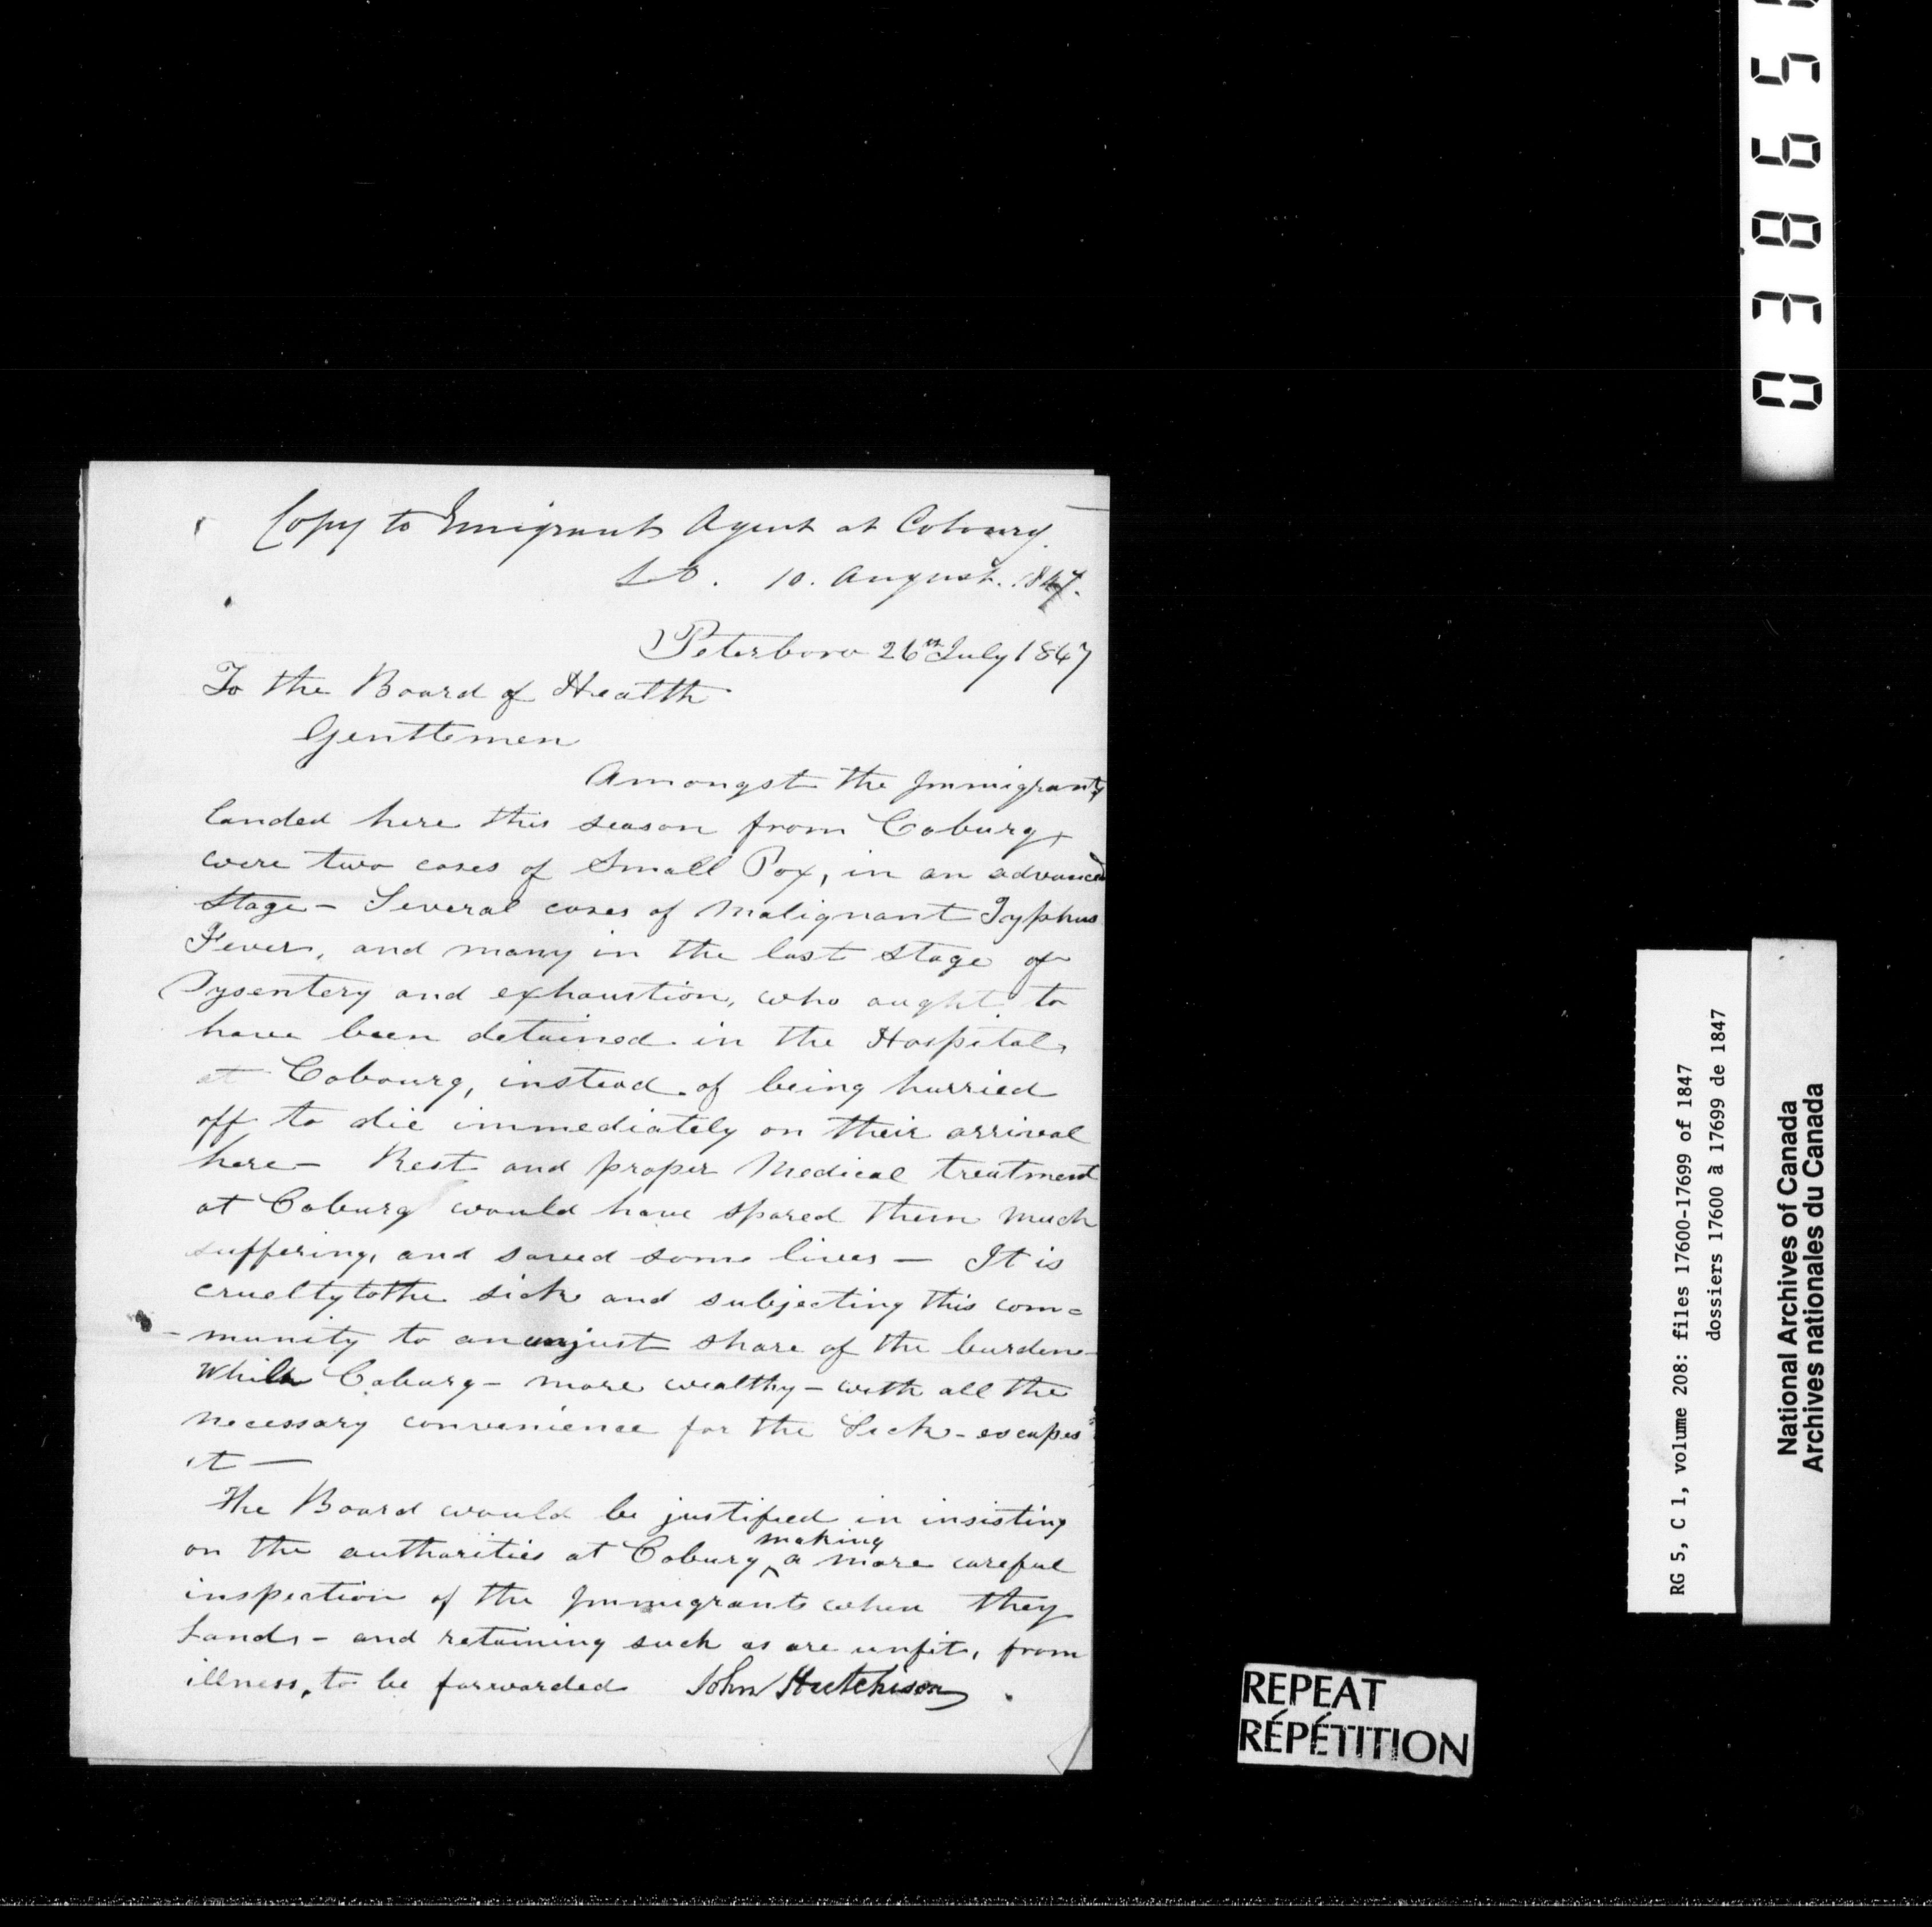 Copy to Emigrant Agent at Cobourg.
10. August. 1847.
Peterboro 26th July 1847
To the Board of Health
Gentlemen
Amongst the Immigrants
landed here this season from Coburg,
were two cases of Small Pox, in an advanced
stage - Several cases of Malignant Typhus
Fever, and many in the last stage of
Dysentery and exhaustion, who aught to
have been detained in the Hospital,
at Cobourg, instead of being hurried
off to die immediately on their arrival
here - Rest and proper Medical treatment
at Coburg would have spared them much
suffering, and saved some lives - It is
cruelty to the sick and subjecting this com=
-munity to an unjust share of the burden-
While Coburg - more wealthy - with all the
necessary convenience for the Sick - escapes
it -
The Board would be justified in insisting
on the authorities at Coburg making a more careful
inspection of the Immigrants when they
Land, - and retaining such as are unfit, from
illness, to be forwarded John Hutchison
REPEAT
RÉPÉTITION
RG 5, C 1, volume 208: files 17600-17699 of 1847
dossiers 17600 à 17699 de 1847
National Archives of Canada
Archives nationales du Canada
03865